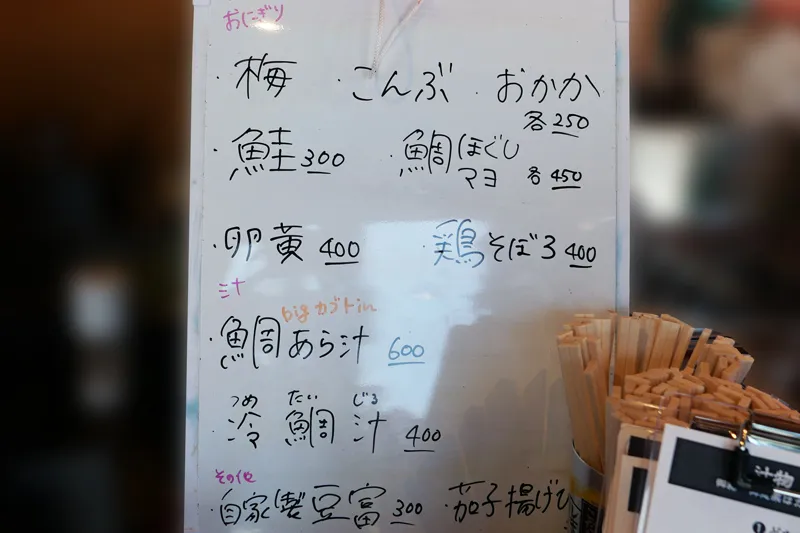 おにぎり
・梅 ・こんぶ ・おかか
各250
・鮭 300 ・鯛ほぐし
マヨ 各450
・卵黄 400 ・鶏そぼろ 400
汁
bigカブトin
・鯛あら汁 600
つめ たい じる
・冷 鯛 汁 400
その他
・自家製豆富 300 ・茄子揚げ
汁物